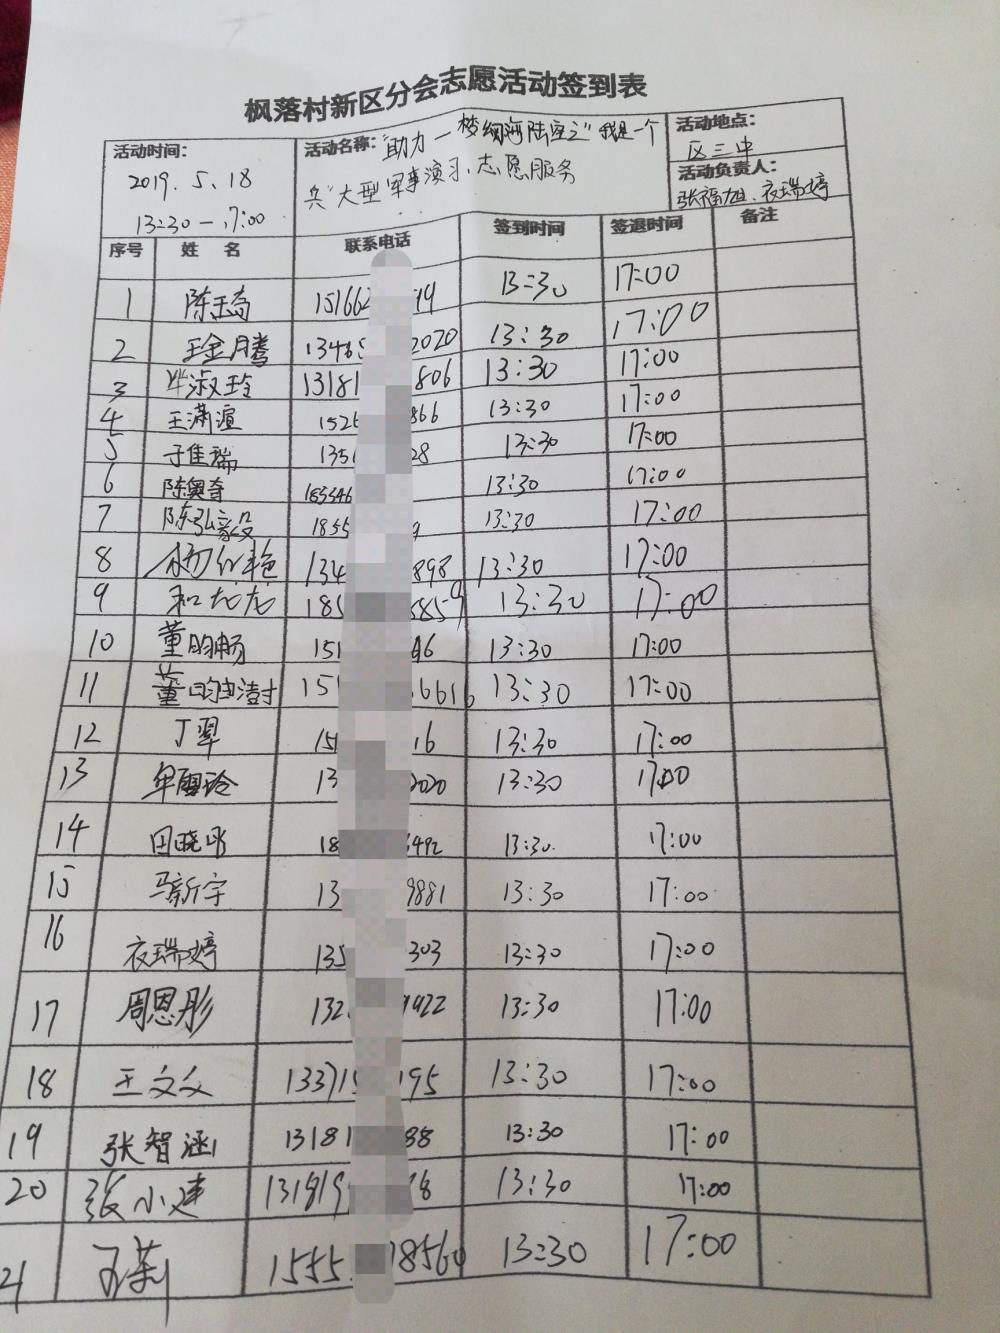 枫落村新区分会志愿活动签到表
活动时间:
2019.5.18
13:30—17:00
活动名称:"助力一梦绚海陆空之"我是一个
兵"大型军事演习、志愿服务
活动地点:
区三中
活动负责人:
张福旭、衣瑞婷
序号 姓 名 联系电话 签到时间 签退时间 备注
1 陈玉 15166 99 13:30 17:00
2 王金腾 1346 2020 13:30 17:00
3 淑玲 13181 806 13:30 17:00
4 王潇渲 1526 866 13:30 17:00
5 于佳瑞 135 28 13:30 17:00
6 陈奥奇 185546 13:30 17:00
7 陈弘毅 1855 13:30 17:00
8 杨红艳 134 898 13:30 17:00
9 和龙龙 185 5859 13:30 17:00
10 董昀畅 151 6 13:30 17:00
11 董昀澍 151 6616 13:30 17:00
12 丁翠 15 16 13:30 17:00
13 玲 13 2020 13:30 17:00
14 田晓 18 492 13:30 17:00
15 马新宇 13 9881 13:30 17:00
16 衣瑞婷 135 303 13:30 17:00
17 周恩彤 132 922 13:30 17:00
18 王文文 13371 195 13:30 17:00
19 张智涵 13181 88 13:30 17:00
20 张小建 131819 8 13:30 17:00
21 王莉 1555 18560 13:30 17:00